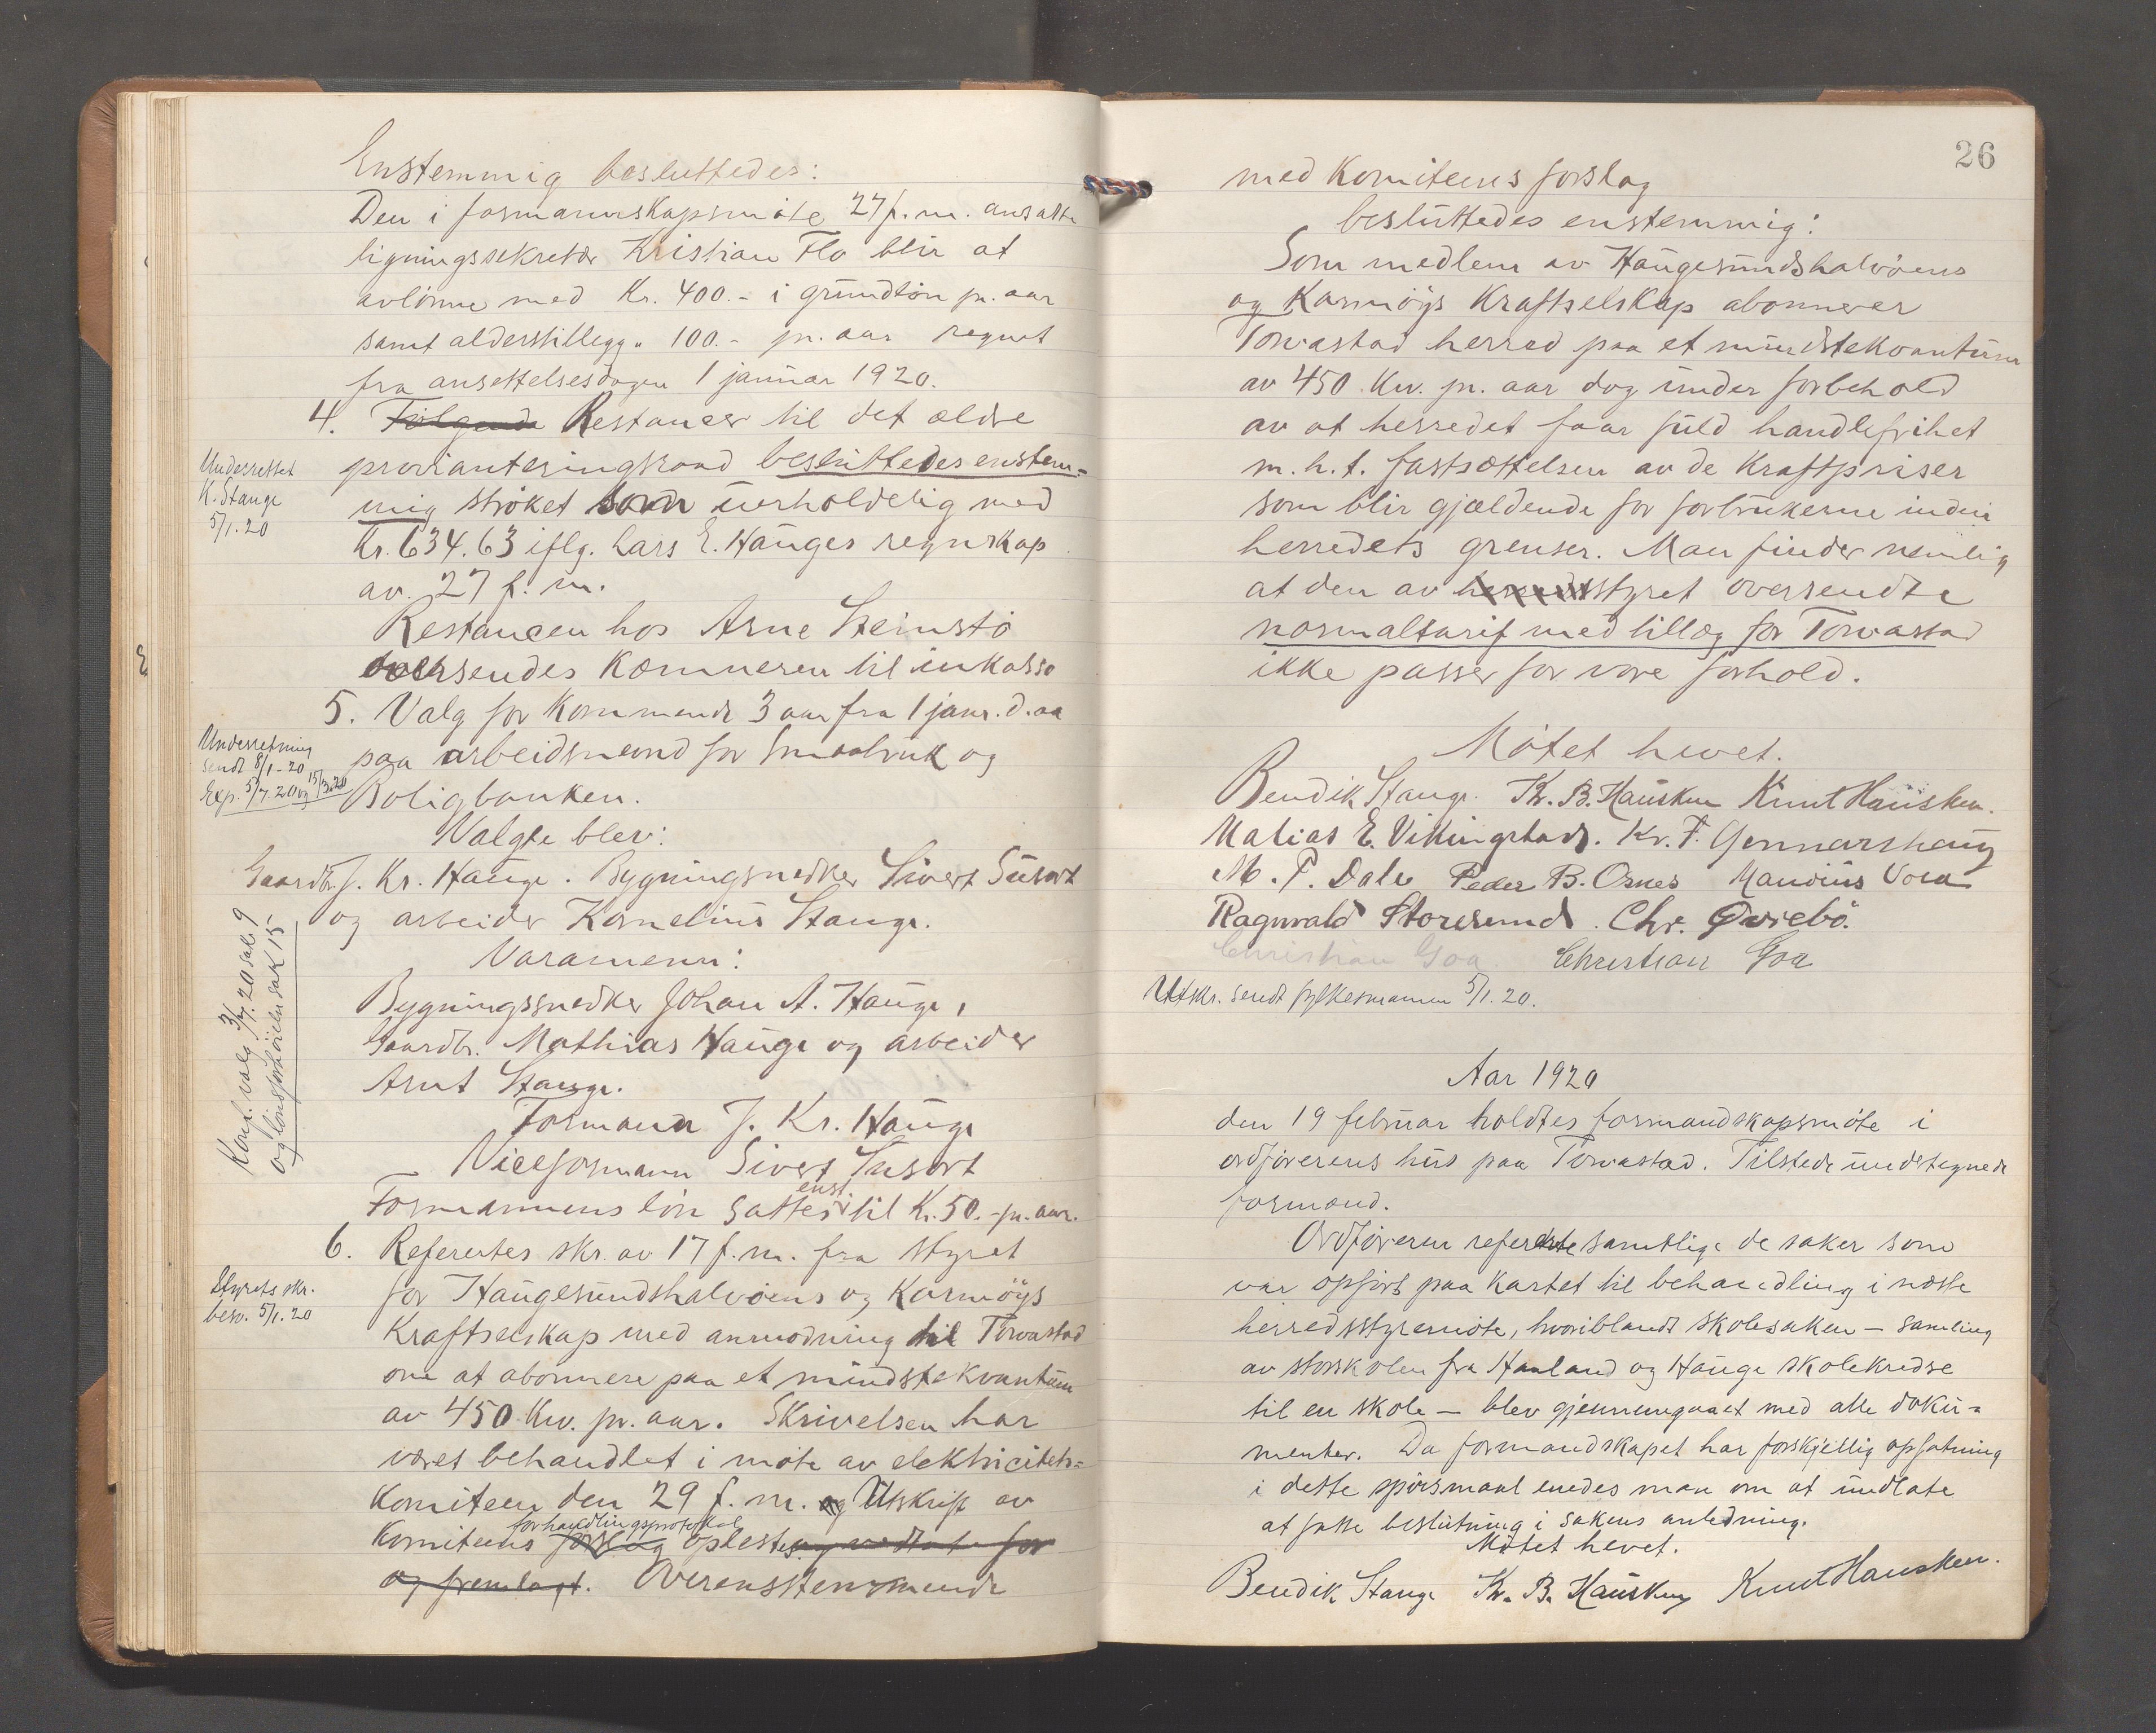 Enstemmig besluttedes:
Den i formannskapsmøte 27 f.m. ansatte
ligningssekretær Kristian Flo blir at
avlønne med Kr. 400.- i grundløn pr. aar
samt alderstillegg " 100.- pr. aar regnet
fra ansettelsesdagen 1 januar 1920.
4. Følgende Restancer til det ældre
provianteringsraad besluttedes enstem-
mig strøket som uerholdelig med
Kr. 634.63 iflg. Lars E. Hauges regnskap
av 27 f.m.
Underrettet
K. Stange
5/1.20
Restancen hos Arne Steinstø
oversendes Kæmneren til inkasso
5. Valg for Kommende 3 aar fra 1 janr. d.aa
paa arbeidsnevnd for Smaabruk og
Boligbanken.
Underretning
sendt 8/1-20
Exp. 5/7.20 og 15/3.20
Valgte blev:
Gaardbr. J. Kr. Hauge. Bygningsnedker Sivert Susort
og arbeider Kornelius Stange.
Varamenn:
Bygningssnedker Johan A. Hauge,
Gaardbr. Mathias Hauge og arbeider
Arnt Stange.
Formann J. Kr. Hauge
Viceformann Sivert Susort
Formannens løn sattes enst. til Kr. 50.- pr. aar.
Konf. valg 3/7.20 sak 9
og lønsforhøieln sak 15
6. Refereites skr. av 17 f.m. fra styret
for Haugesundshalvøens og Karmøys
Kraftselskap med anmodning til Torvastad
om at abonnere paa et mindstekvantum
av 450 Kw. pr. aar. Skrivelsen har
været behandlet i møte av elektricitets-
Komiteen den 29 f.m. og Utskrift av
Komiteens forslag forhandlingsprotokol oplestes og vedtat for
og fremlagt. Overensstemmende
Styrets skr.
besv. 5/1.20
26
med Komiteens forslag
besluttedes enstemmig:
Som medlem av Haugesundshalvøens
og Karmøys Kraftselskap abonnerer
Torvastad herred paa et mindstekvantum
av 450 Kw. pr. aar dog under forbehold
av at herredet faar fuld handlefrihet
m.h.t. fastsættelsen av de Kraftpriser
som blir gjældende for forbrukerne inden
herredets grenser. Man finder nemlig
at den av herredsstyret oversendte
normaltarif med tillæg for Torvastad
ikke passer for vore forhold.
Møtet hevet.
Bendik Stange. Kr. B. Hausken Knut Hausken.
Matias E. Vikingstad. Kr. F. Gunnarshaug
M. T. Dale Peder B. Osnes Mandius Vora
Ragnvald Storesund. Chr. Qviebø.
Christian Goa Christian Goa
Utskr. sendt fylkesmannen 5/1.20.
Aar 1920
den 19 februar holdtes formandskapsmøte i
ordførerens hus paa Torvastad. Tilstede undertegnede
formænd.
Ordføreren refererte samtlige de saker som
var opført paa Kartet til behandling i næste
herredsstyremøte, hvoriblandt skolesaken - samling
av storskolen fra Haaland og Hauge skolekredse
til en skole - blev gjennemgaaet med alle doku-
menter. Da formandskapet har forskjellig opfatning
i dette spørsmaal enedes man om at undlate
at fatte beslutning i sakens anledning.
Møtet hevet.
Bendik Stange Kr. B. Hausken Knut Hausken.